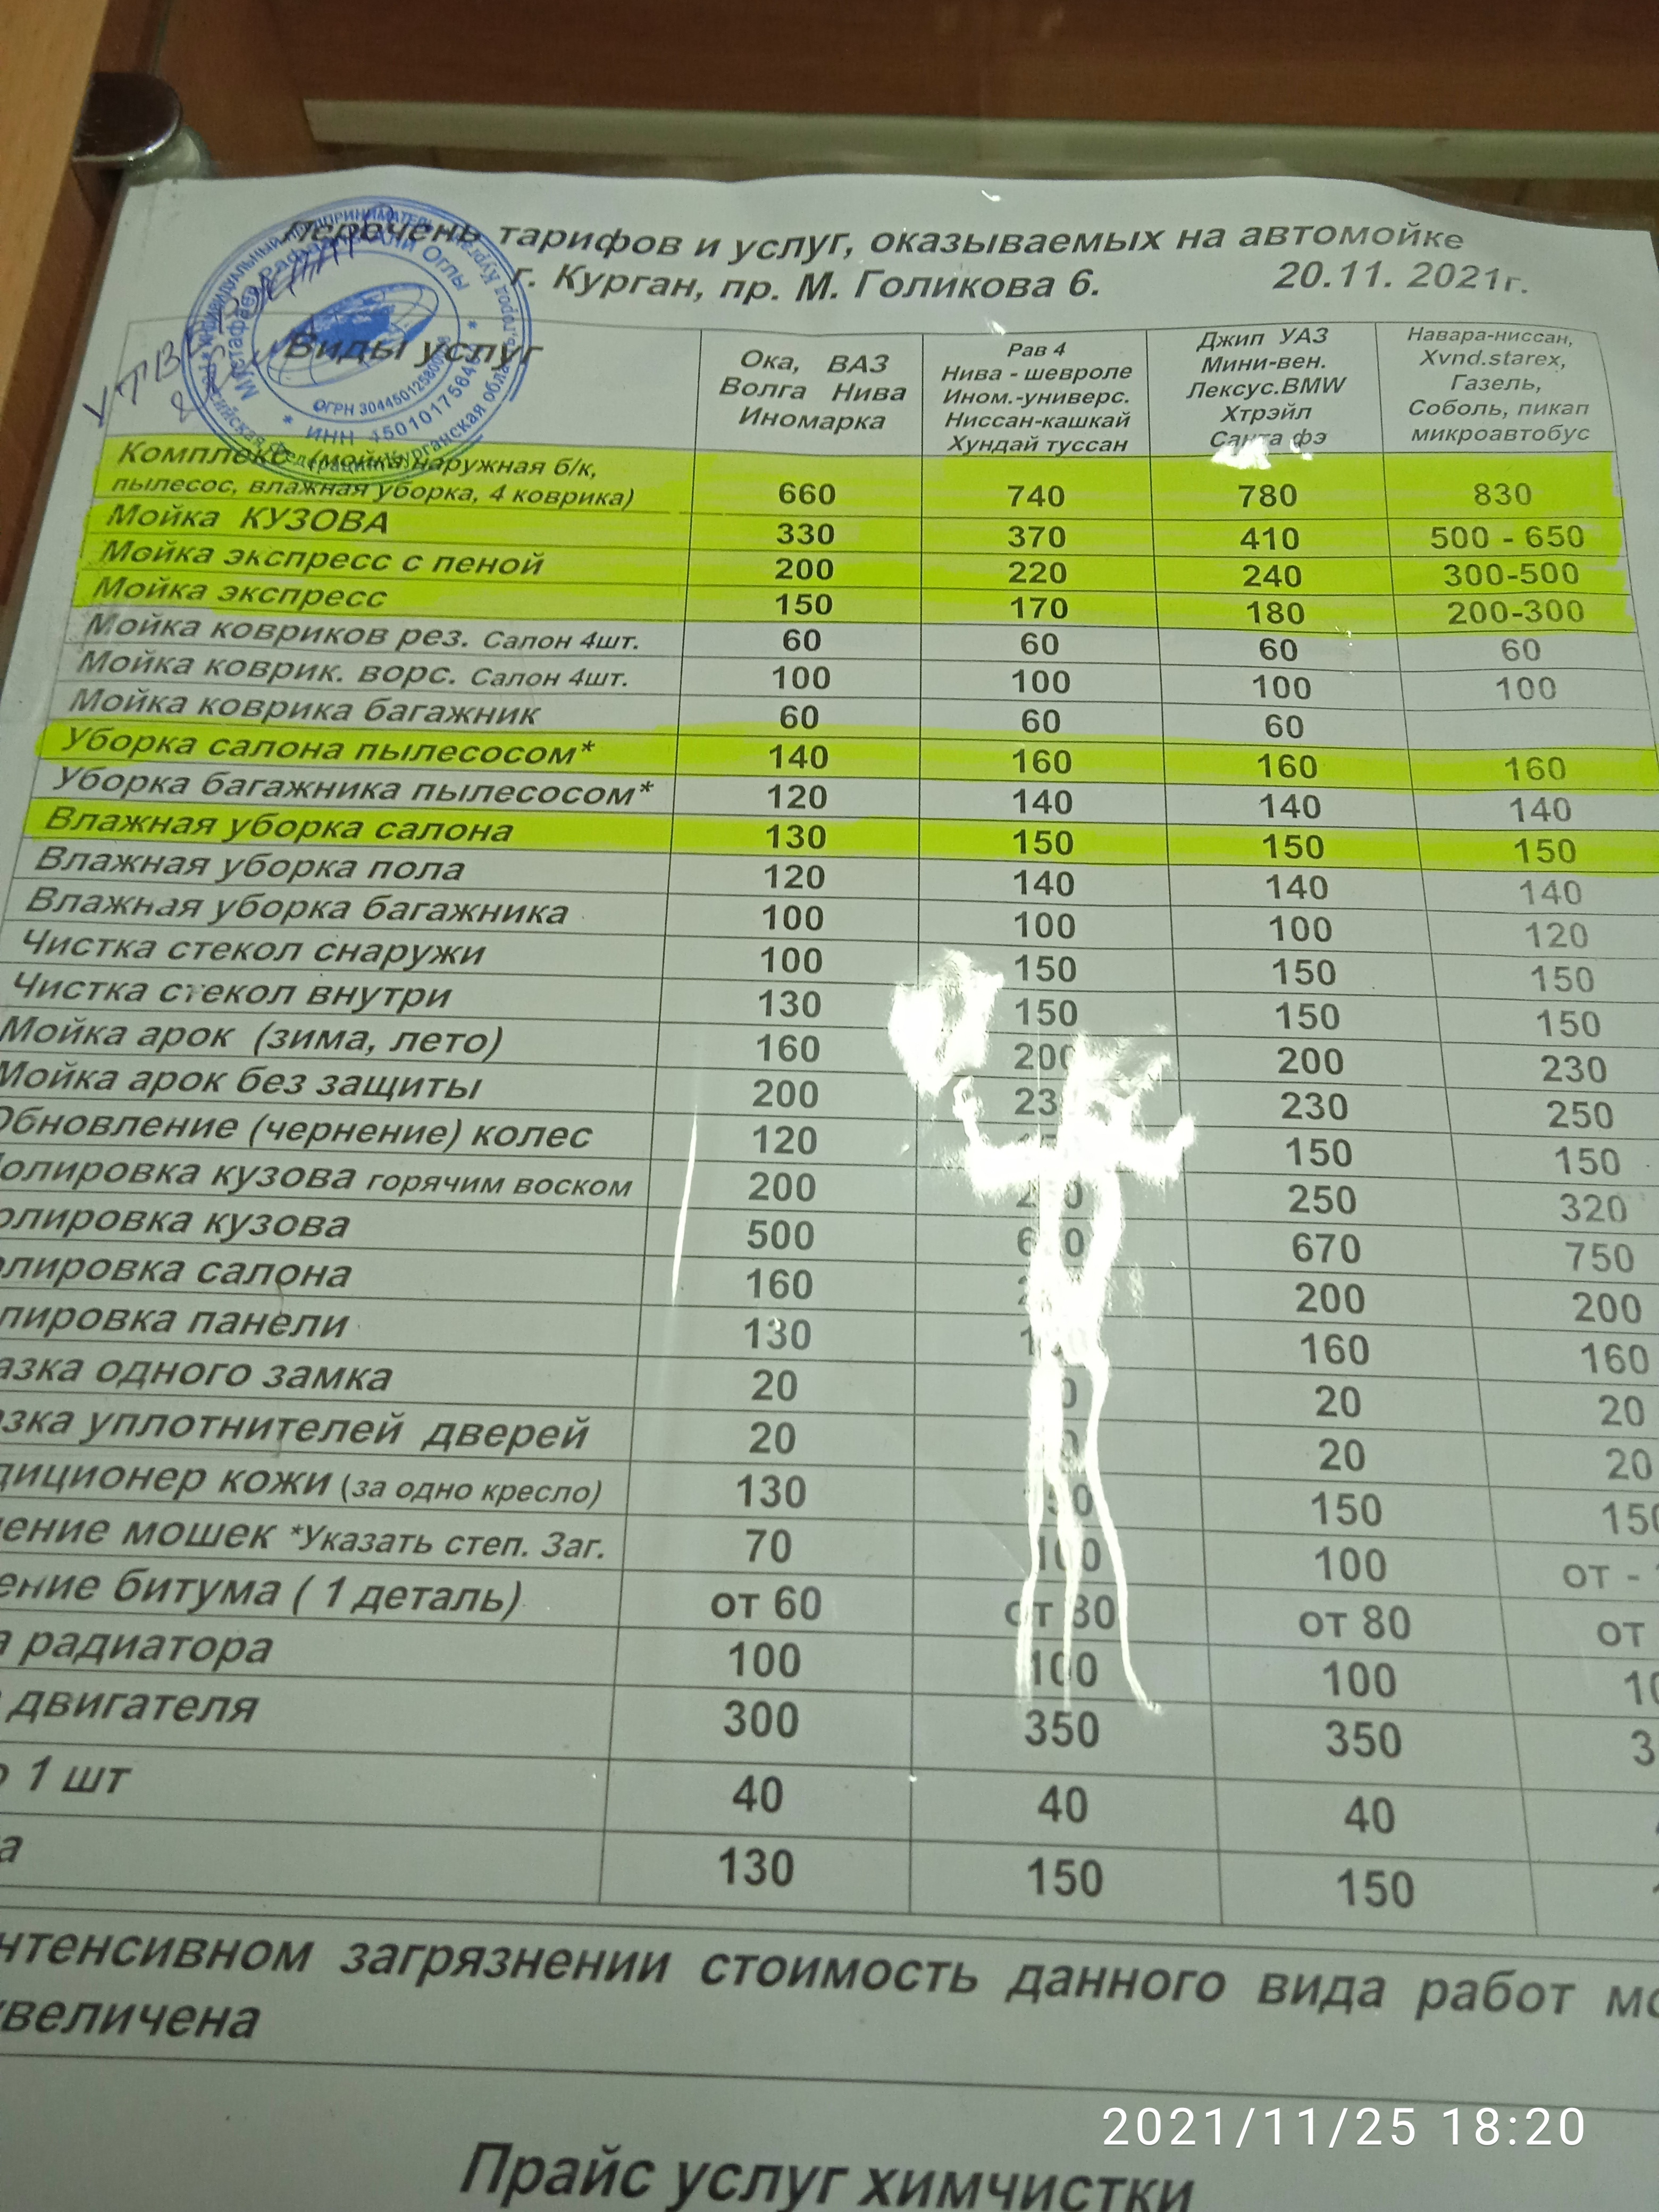 Перечень тарифов и услуг, оказываемых на автомойке
г. Курган, пр. М. Голикова 6. 20.11. 2021г.
ОГРН
ИНН
Виды услуг
Ока, ВАЗ
Волга Нива
Иномарка
Рав 4
Нива - шевроле
Ином.-универс.
Ниссан-кашкай
Хундай туссан
Джип УАЗ
Мини-вен.
Лексус.BMW
Хтрэйл
Санта фэ
Навара-ниссан,
Xvnd.starex,
Газель,
Соболь, пикап
микроавтобус
Комплекс (мойка наружная б/к,
пылесос, влажная уборка, 4 коврика) 660 740 780 830
Мойка КУЗОВА 330 370 410 500 - 650
Мойка экспресс с пеной 200 220 240 300-500
Мойка экспресс 150 170 180 200-300
Мойка ковриков рез. Салон 4шт. 60 60 60 60
Мойка коврик. ворс. Салон 4шт. 100 100 100 100
Мойка коврика багажник 60 60 60
Уборка салона пылесосом* 140 160 160 160
Уборка багажника пылесосом* 120 140 140 140
Влажная уборка салона 130 150 150 150
Влажная уборка пола 120 140 140 140
Влажная уборка багажника 100 100 100 120
Чистка стекол снаружи 100 150 150 150
Чистка стекол внутри 130 150 150 150
Мойка арок (зима, лето) 160 200 200 230
Мойка арок без защиты 200 230 250
Обновление (чернение) колес 120 150 150
олировка кузова горячим воском 200 250 320
олировка кузова 500 670 750
олировка салона 160 200 200
лировка панели 130 160 160
азка одного замка 20 20 20
зка уплотнителей дверей 20 20 20
диционер кожи (за одно кресло) 130 150
ение мошек *Указать степ. Заг. 70 100 100 от -
ение битума ( 1 деталь) от 60 от 80 от 80 от
а радиатора 100 100 100
двигателя 300 350 350
1 шт 40 40 40
а 130 150 150
нтенсивном загрязнении стоимость данного вида работ
величена
Прайс услуг химчистки
2021/11/25 18:20